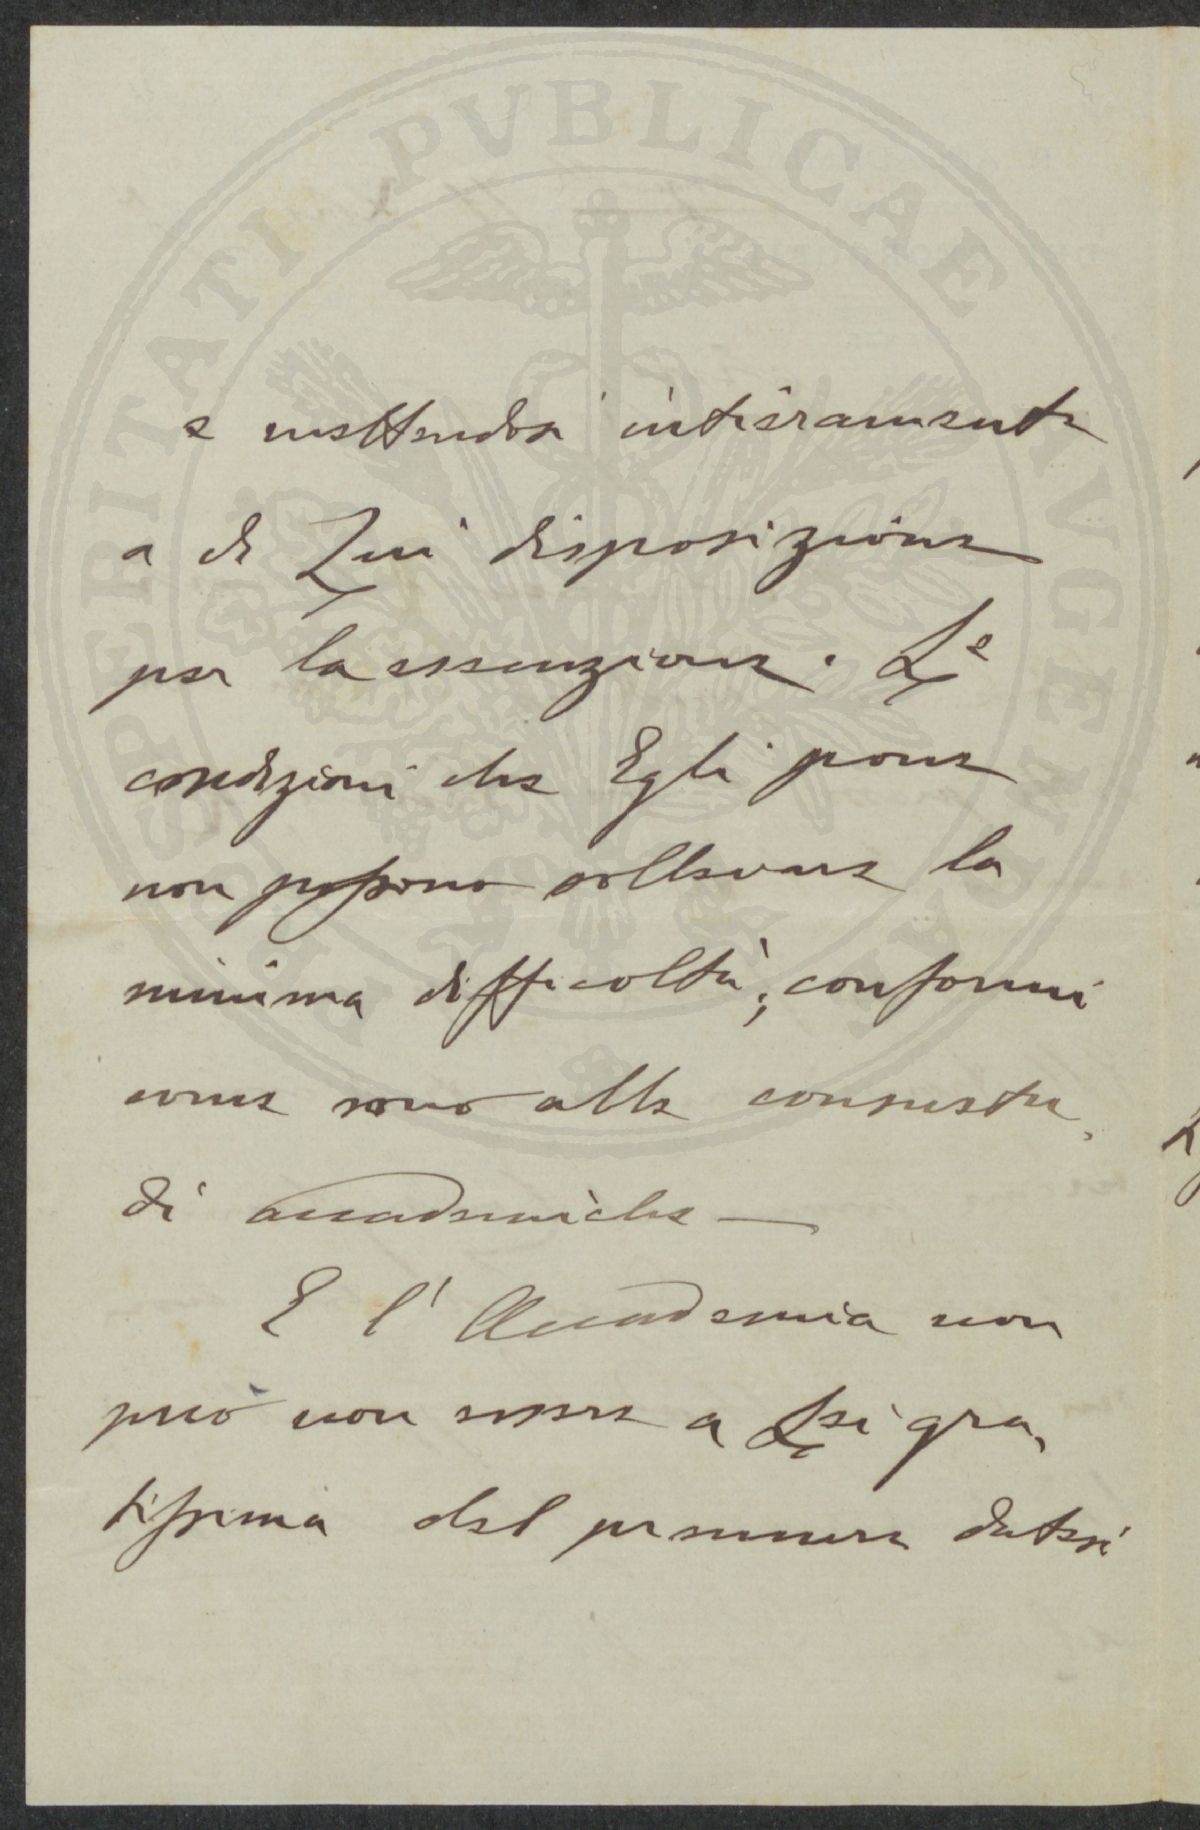 PROSPERITATI PVBLICAE AVGENDAE
e mettendosi intieramente
a di Lui disposizione
per la essenzione. Le
condizioni che Egli pone
non possono sollevare la
minima difficoltà; conformi
come sono alle consuetu,
di accademiche —
E l'Accademia non
può non essere a Lei gra,
tissima del premure datesi